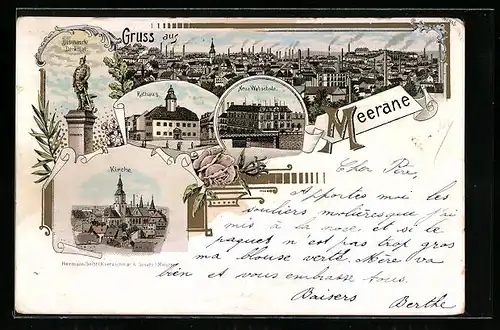 Bismarck-
Denkmal
Gruss aus
Meerane
Rathaus
Neue Webschule
Kirche
Cher Père,
Apportez moi les
souliers molièresque j'ai
mis à la noce et si le
paquet n'est pas trop gros
ma blouse verte. Mère va
bien et vous embrasse tous.
Baisers
Berthe